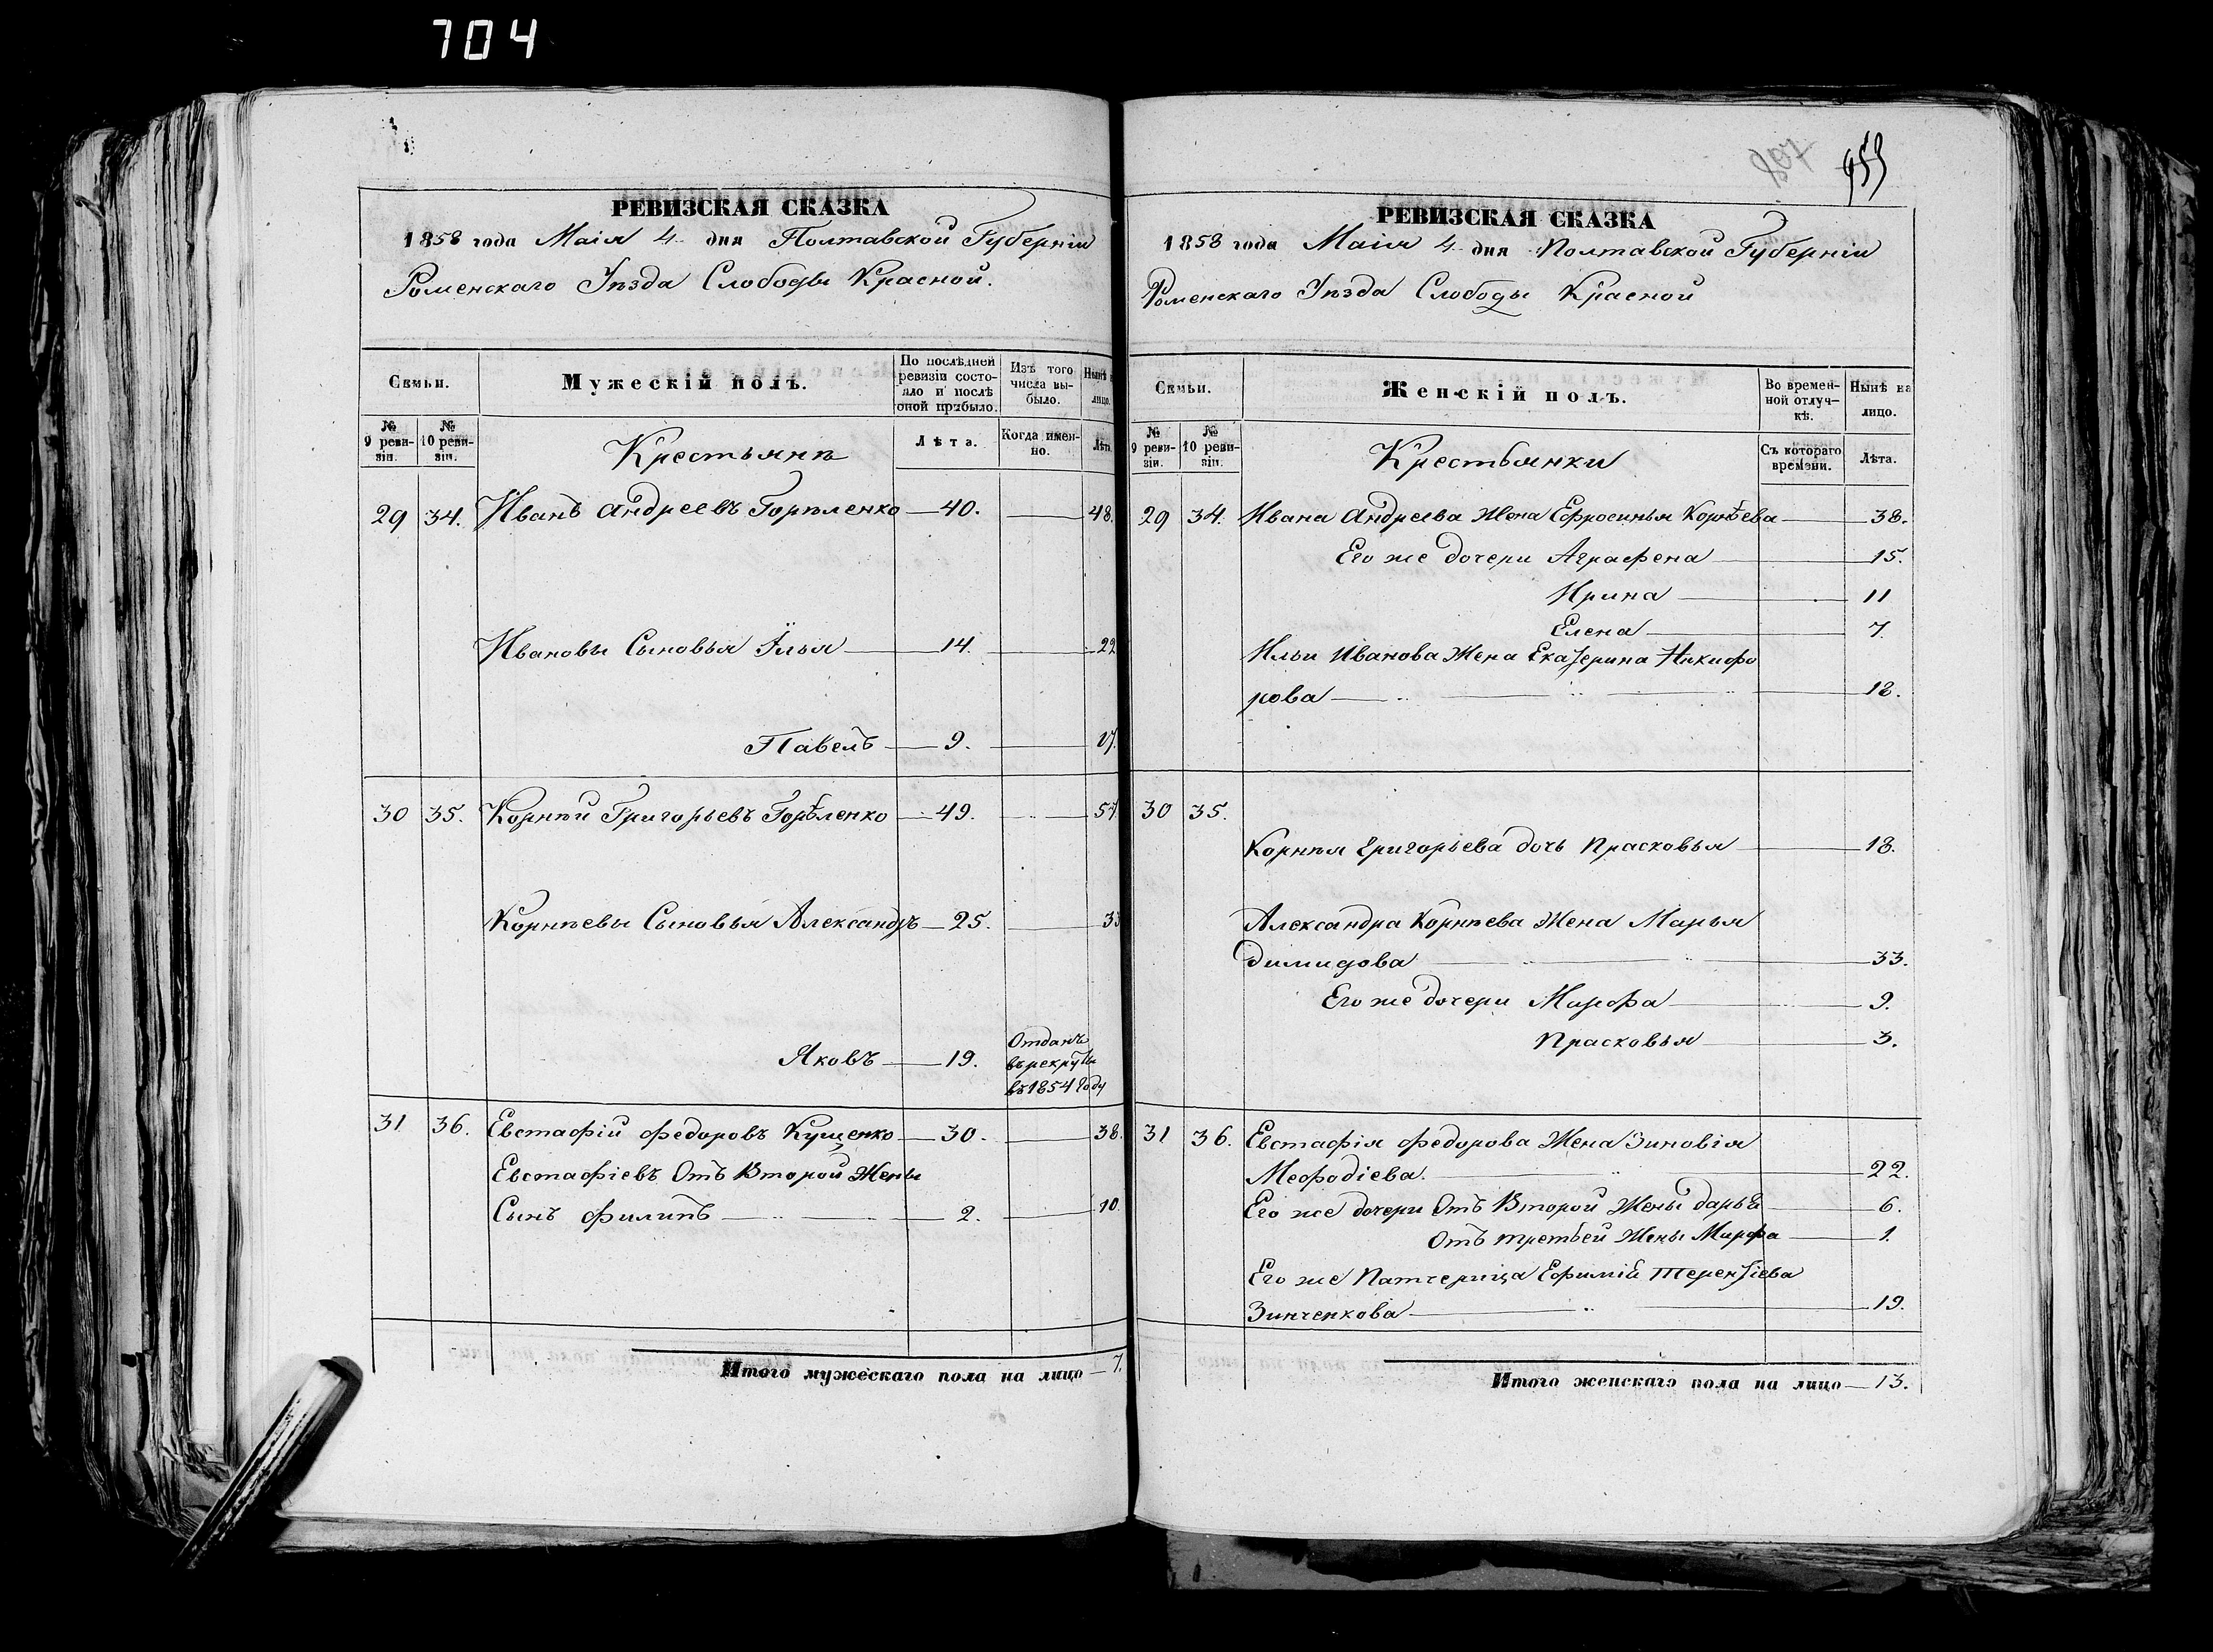 704
РЕВИЗСКАЯ СКАЗКА
1858 года Маія 4 дня Полтавской Губерніи
Роменскаго Уѣзда Слободы Красной.
Семьи.
Мужескій полъ.
По послѣдней ревизіи состояло и послѣ оной прибыло.
Изъ того числа выбыло.
Нынѣ н лицо.
№ 9 ревизіи.
№ 10 ревизіи.
Крестьянѣ
Лѣта.
Когда именно.
Лѣт
29 34. Иванъ Андреевъ Горѣленко 40. 48.
Ивановы Сыновья Илья 14. 22
Павелъ 9. 17.
30 35. Корнѣй Григорьевъ Горѣленко 49. 57
Корнѣевы Сыновья Александръ 25. 33
Яковъ 19. Отданъ
въ рекруты
въ 1854 году
31 36. Евстафій Федоровъ Кущенко 30. 38.
Евстафіевъ Отъ Второй Жены
Сынъ Филипъ 2. 10.
Итого мужескаго пола на лицо 7.
807 955
РЕВИЗСКАЯ СКАЗКА
1858 года Маія 4 дня Полтавской Губерніи
Роменскаго Уѣзда Слободы Красной
Семьи.
Женскій полъ.
Во временной отлучкѣ.
Нынѣ на лицо.
№ 9 ревизіи.
№ 10 ревизіи.
Крестьянки
Съ котораго времени.
Лѣта.
29 34. Ивана Андреева Жена Ефросинья Корнѣева 38.
Его же дочери Аграфена 15.
Ирина 11
Елена 7.
Ильи Иванова Жена Екатерина Никифо
рова 18.
30 35.
Корнѣя Григорьева дочь Прасковья 18.
Александра Корнѣева Жена Марья
Димидова 33.
Его же дочери Марфа 9.
Прасковья 3.
31 36. Евстафія Федорова Жена Зиновія
Мефодіева. 22.
Его же дочери Отъ Второй Жены Дарья 6.
Отъ третьей Жены Марфа 1.
Его же Патчерица Ефимія Терентіева
Зинченкова 19.
Итого женскаго пола на лицо 13.